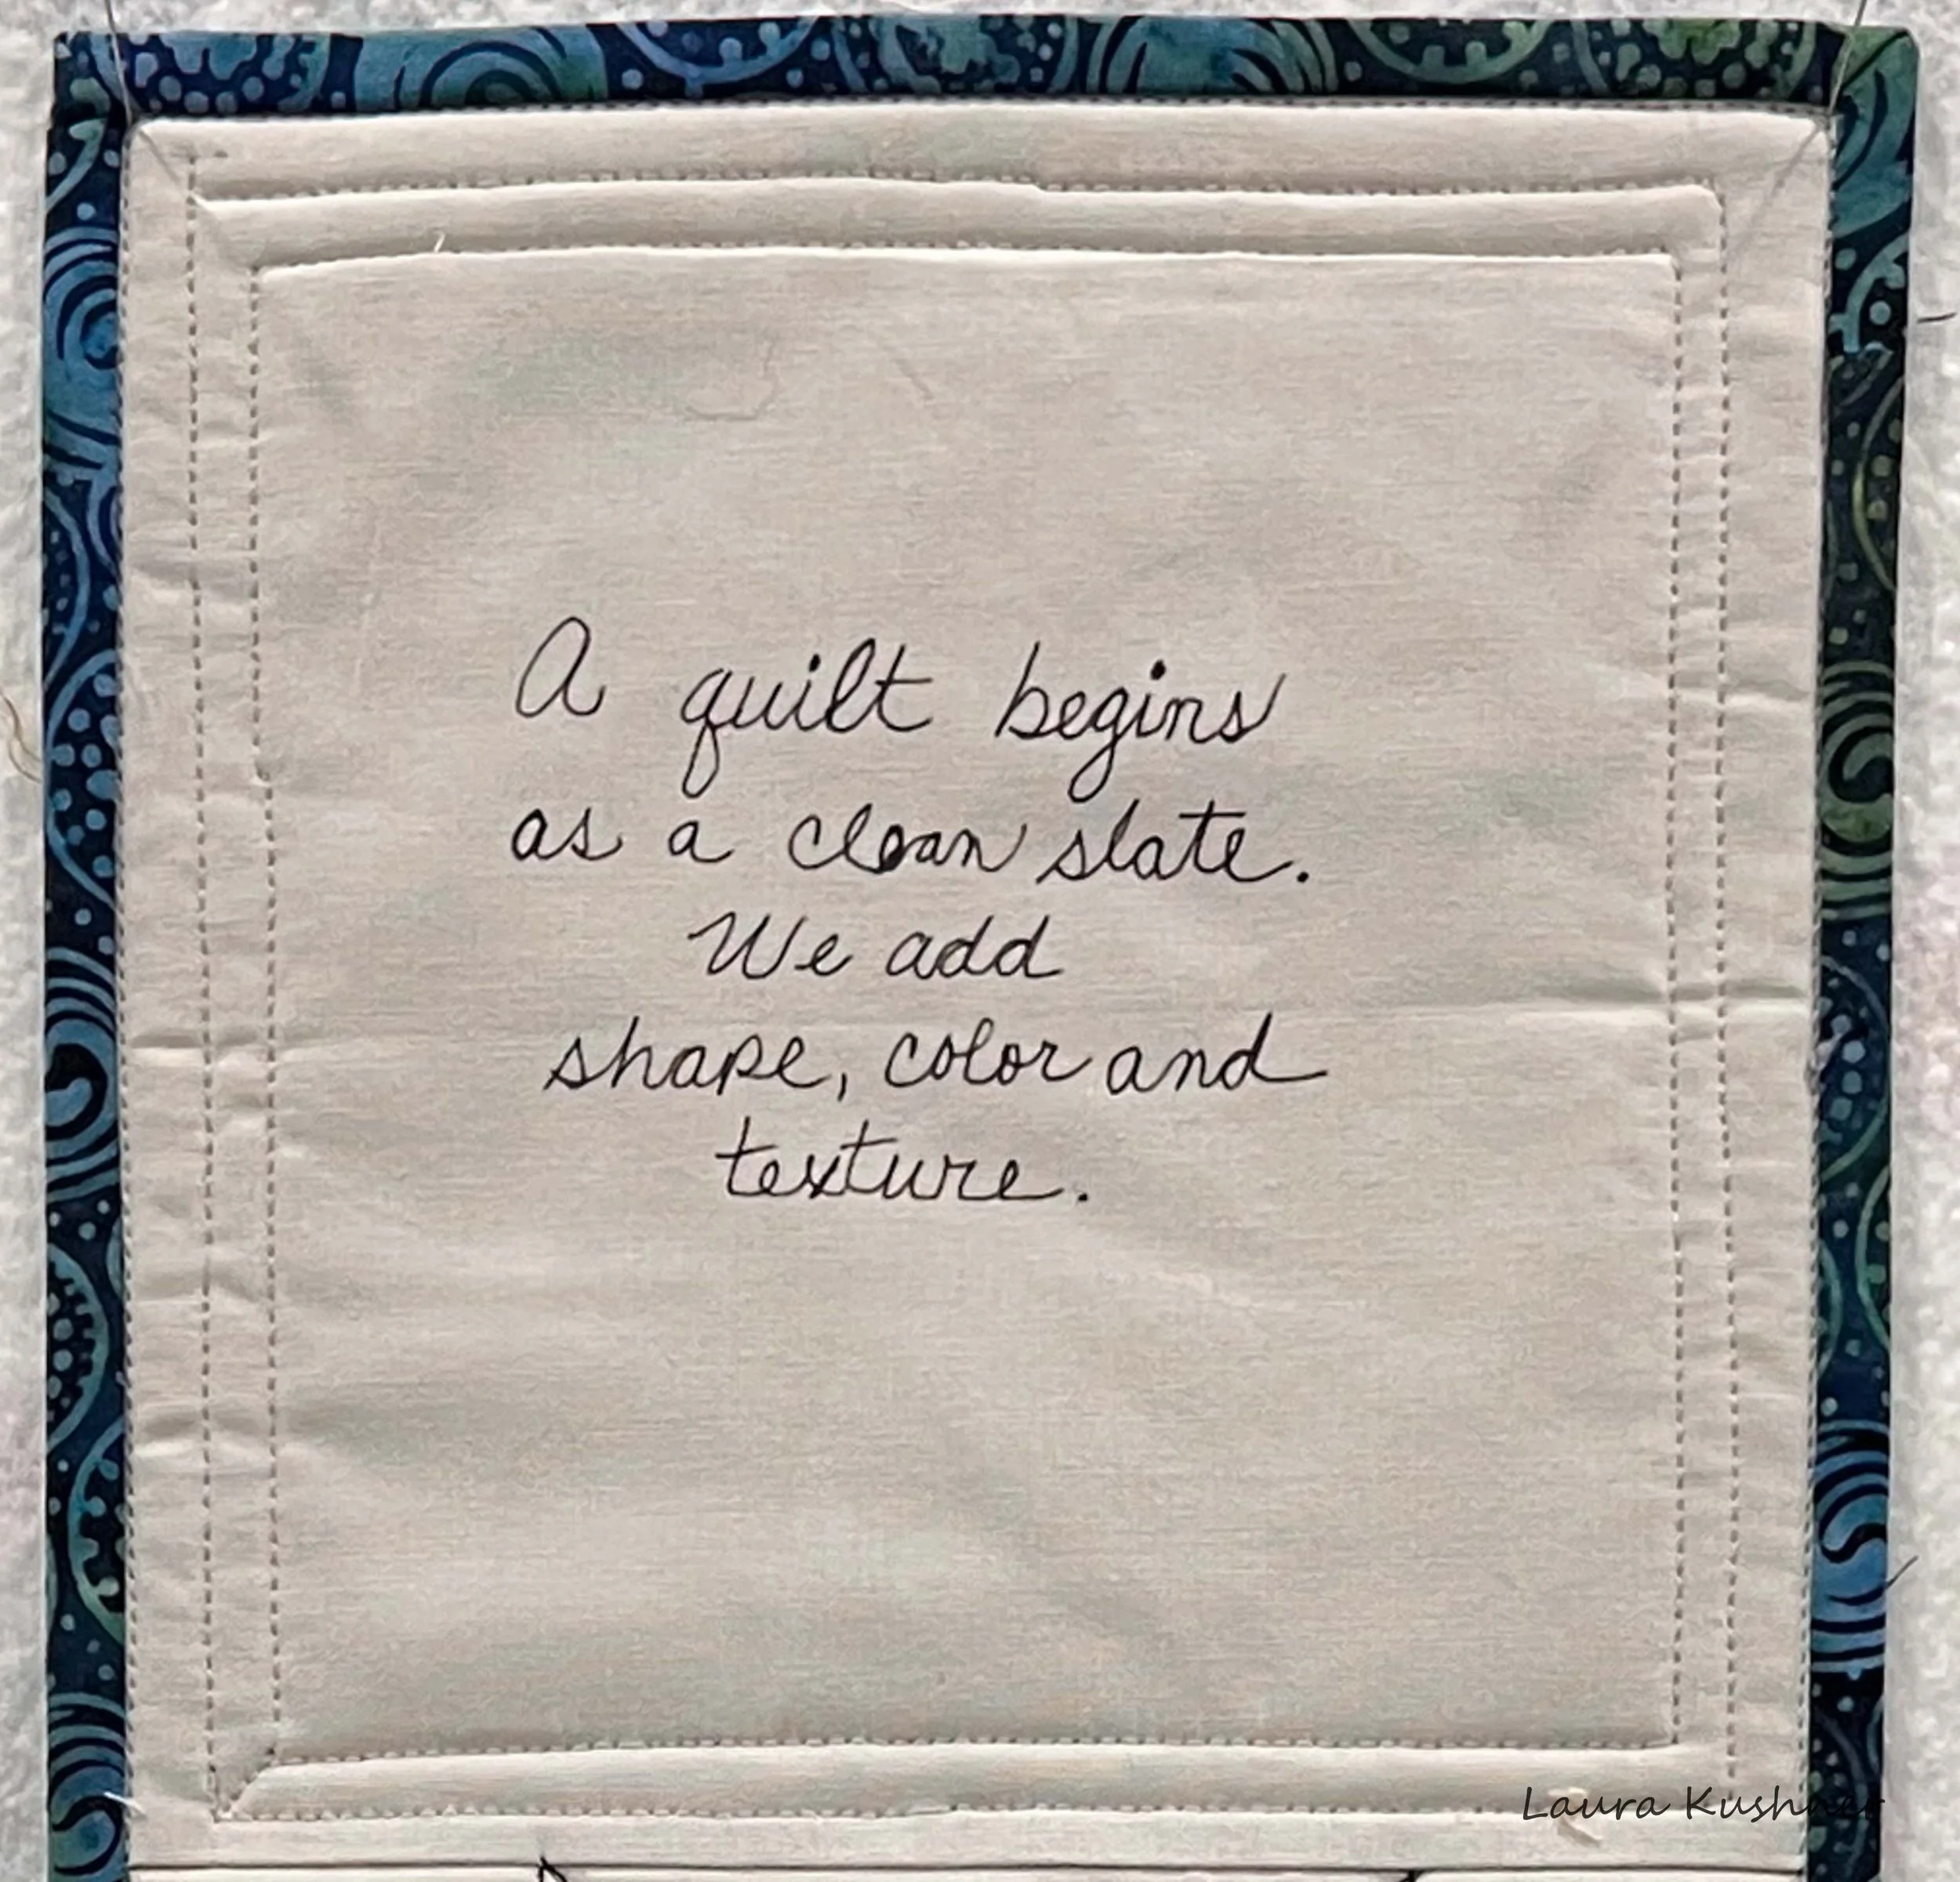 A quilt begins
as a clean slate.
We add
shape, color and
texture.
Laura Kushner